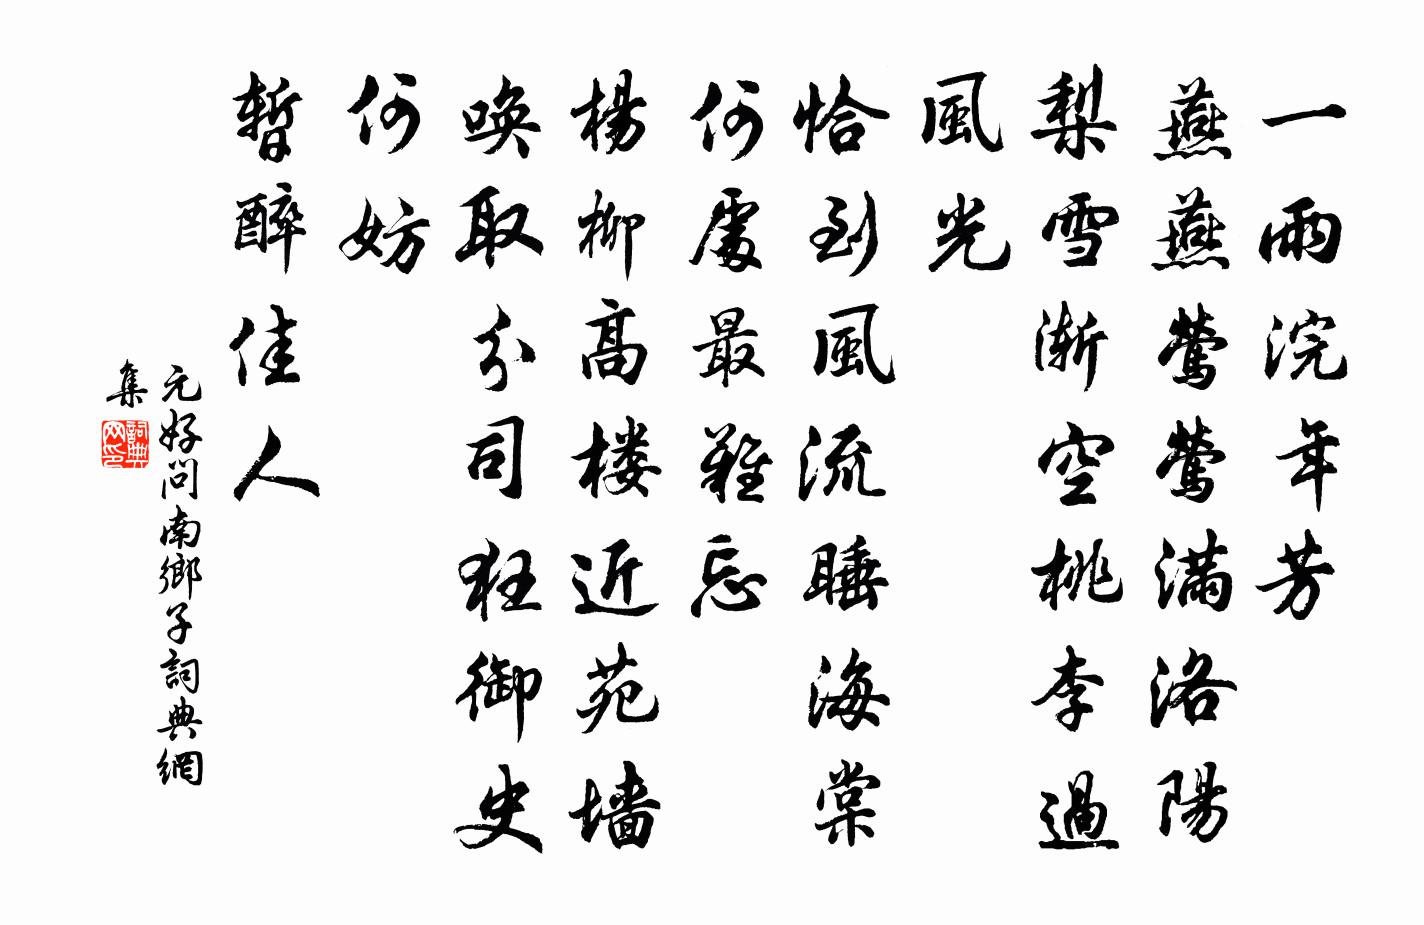 一雨浣年芳
燕燕鶯鶯满洛陽
梨雪渐空桃李過
風光
恰到風流睡海棠
何處最難忘
楊柳高楼近苑墙
唤取分司狂御史
何妨
暫醉佳人
元好问南鄉子詞典網
集
詞典
网印